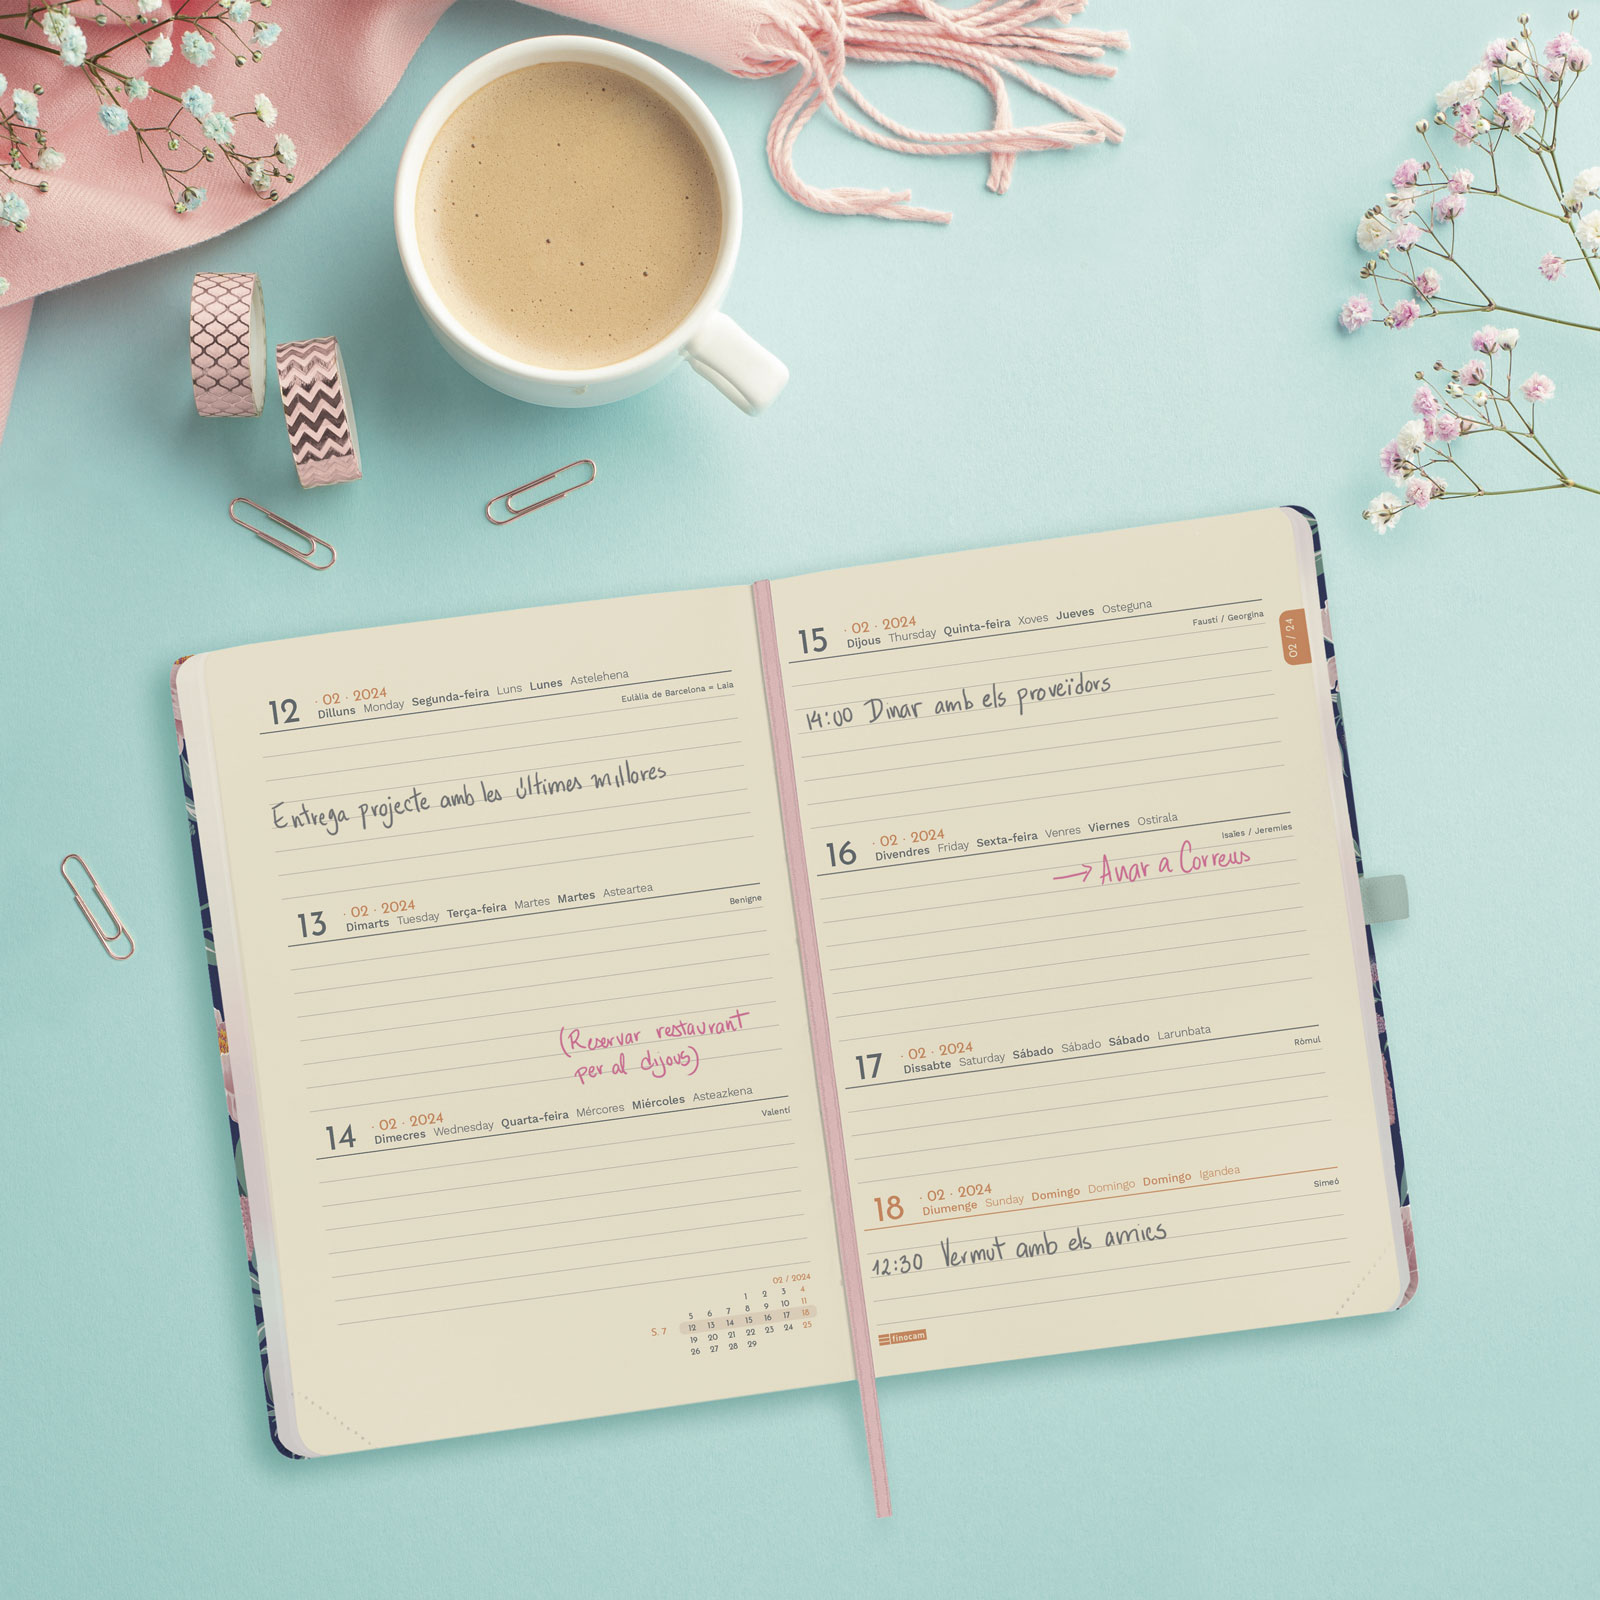 12 · 02 · 2024
Dilluns Monday Segunda-feira Luns Lunes Astelehena
Eulàlia de Barcelona = Laia
Entrega projecte amb les últimes millores
13 · 02 · 2024
Dimarts Tuesday Terça-feira Martes Martes Asteartea
Benigne
(Reservar restaurant
per al dijous)
14 · 02 · 2024
Dimecres Wednesday Quarta-feira Mércores Miércoles Asteazkena
Valentí
02 / 2024
1 2 3 4
5 6 7 8 9 10 11
S. 7 12 13 14 15 16 17 18
19 20 21 22 23 24 25
26 27 28 29
15 · 02 · 2024
Dijous Thursday Quinta-feira Xoves Jueves Osteguna
Faustí / Georgina
02 / 24
14:00 Dinar amb els proveïdors
16 · 02 · 2024
Divendres Friday Sexta-feira Venres Viernes Ostirala
Isaïes / Jeremies
→ Anar a Correus
17 · 02 · 2024
Dissabte Saturday Sábado Sábado Sábado Larunbata
Ròmul
18 · 02 · 2024
Diumenge Sunday Domingo Domingo Domingo Igandea
Simeó
12:30 Vermut amb els amics
finocam